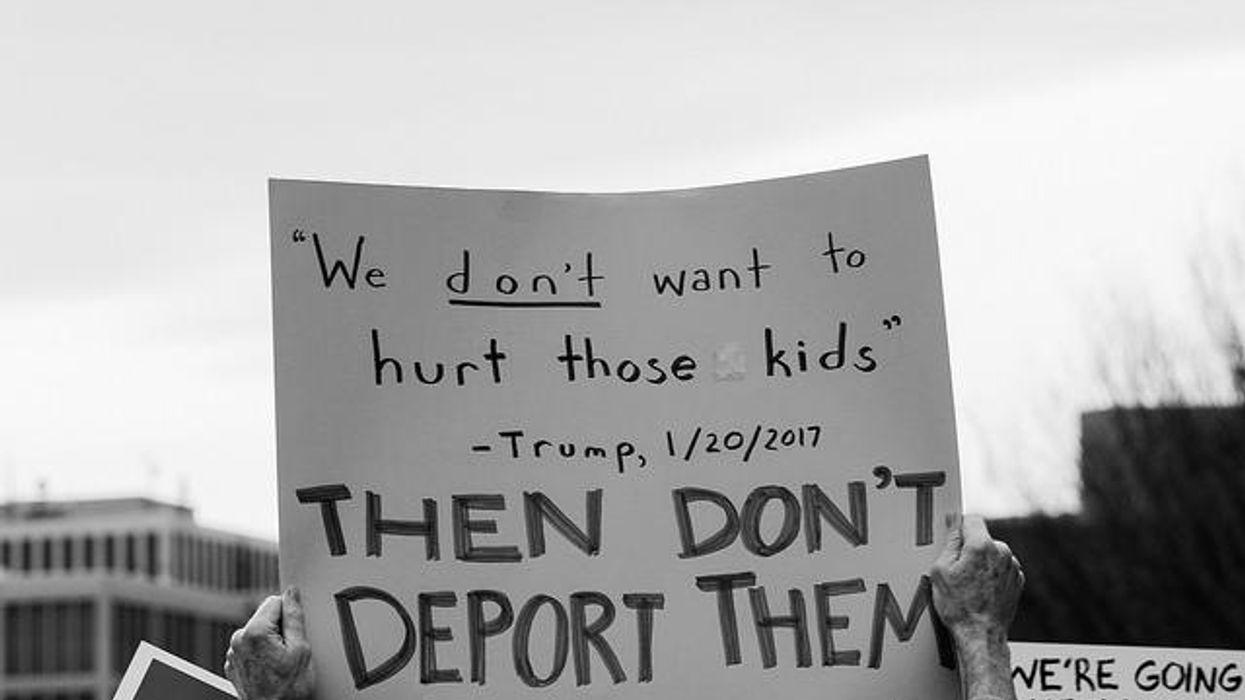 “We don't want to
hurt those kids”
-Trump, 1/20/2017
THEN DON'T
DEPORT THEM
WE'RE GOING